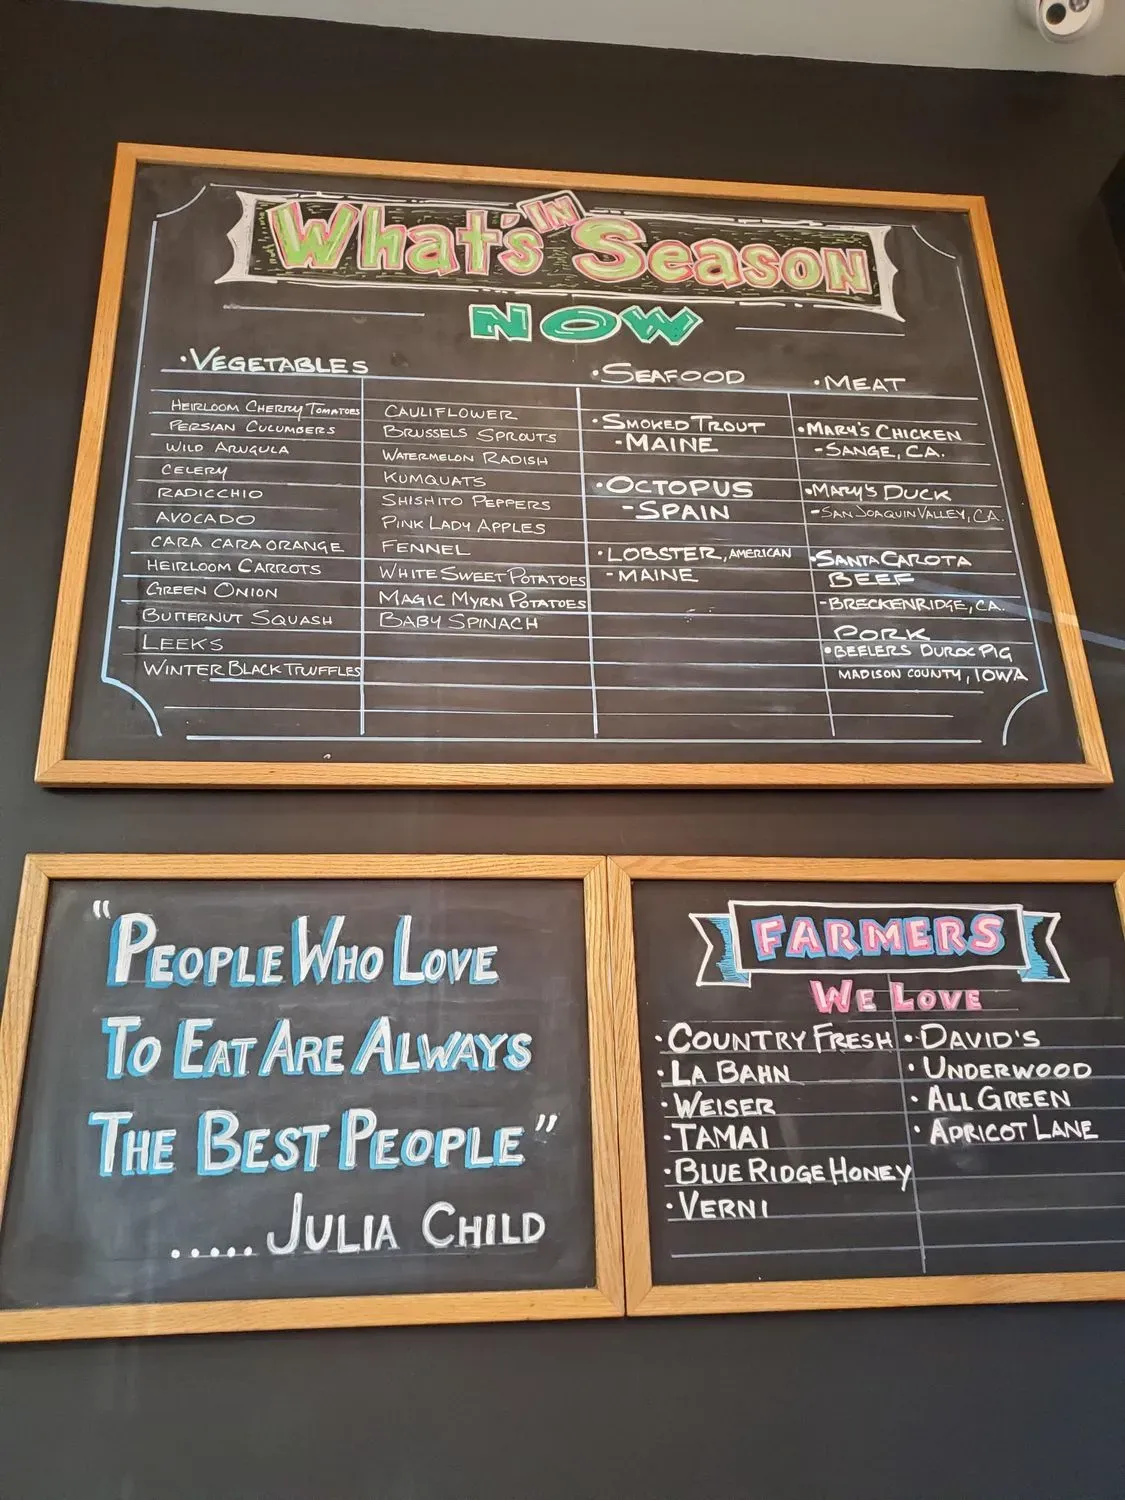 What's IN Season
NOW
• VEGETABLES
HEIRLOOM CHERRY TOMATOES
PERSIAN CUCUMBERS
WILD ARUGULA
CELERY
RADICCHIO
AVOCADO
CARA CARA ORANGE
HEIRLOOM CARROTS
GREEN ONION
BUTTERNUT SQUASH
LEEKS
WINTER BLACK TRUFFLES
CAULIFLOWER
BRUSSELS SPROUTS
WATERMELON RADISH
KUMQUATS
SHISHITO PEPPERS
PINK LADY APPLES
FENNEL
WHITE SWEET POTATOES
MAGIC MYRN POTATOES
BABY SPINACH
• SEAFOOD
• SMOKED TROUT
- MAINE
• OCTOPUS
- SPAIN
• LOBSTER, AMERICAN
- MAINE
• MEAT
• MARY'S CHICKEN
- SANGE, CA.
• MARY'S DUCK
- SAN JOAQUIN VALLEY, CA.
• SANTA CAROTA
BEEF
- BRECKENRIDGE, CA.
PORK
• BEELERS DUROC PIG
MADISON COUNTY, IOWA
"PEOPLE WHO LOVE
TO EAT ARE ALWAYS
THE BEST PEOPLE"
..... JULIA CHILD
FARMERS
WE LOVE
• COUNTRY FRESH
• LA BAHN
• WEISER
• TAMAI
• BLUE RIDGE HONEY
• VERNI
• DAVID'S
• UNDERWOOD
• ALL GREEN
• APRICOT LANE